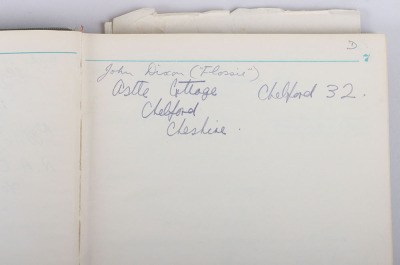 D
7
John Dixon ("Flossie")
Astle Cottage Chelford 32.
Chelford
Cheshire.